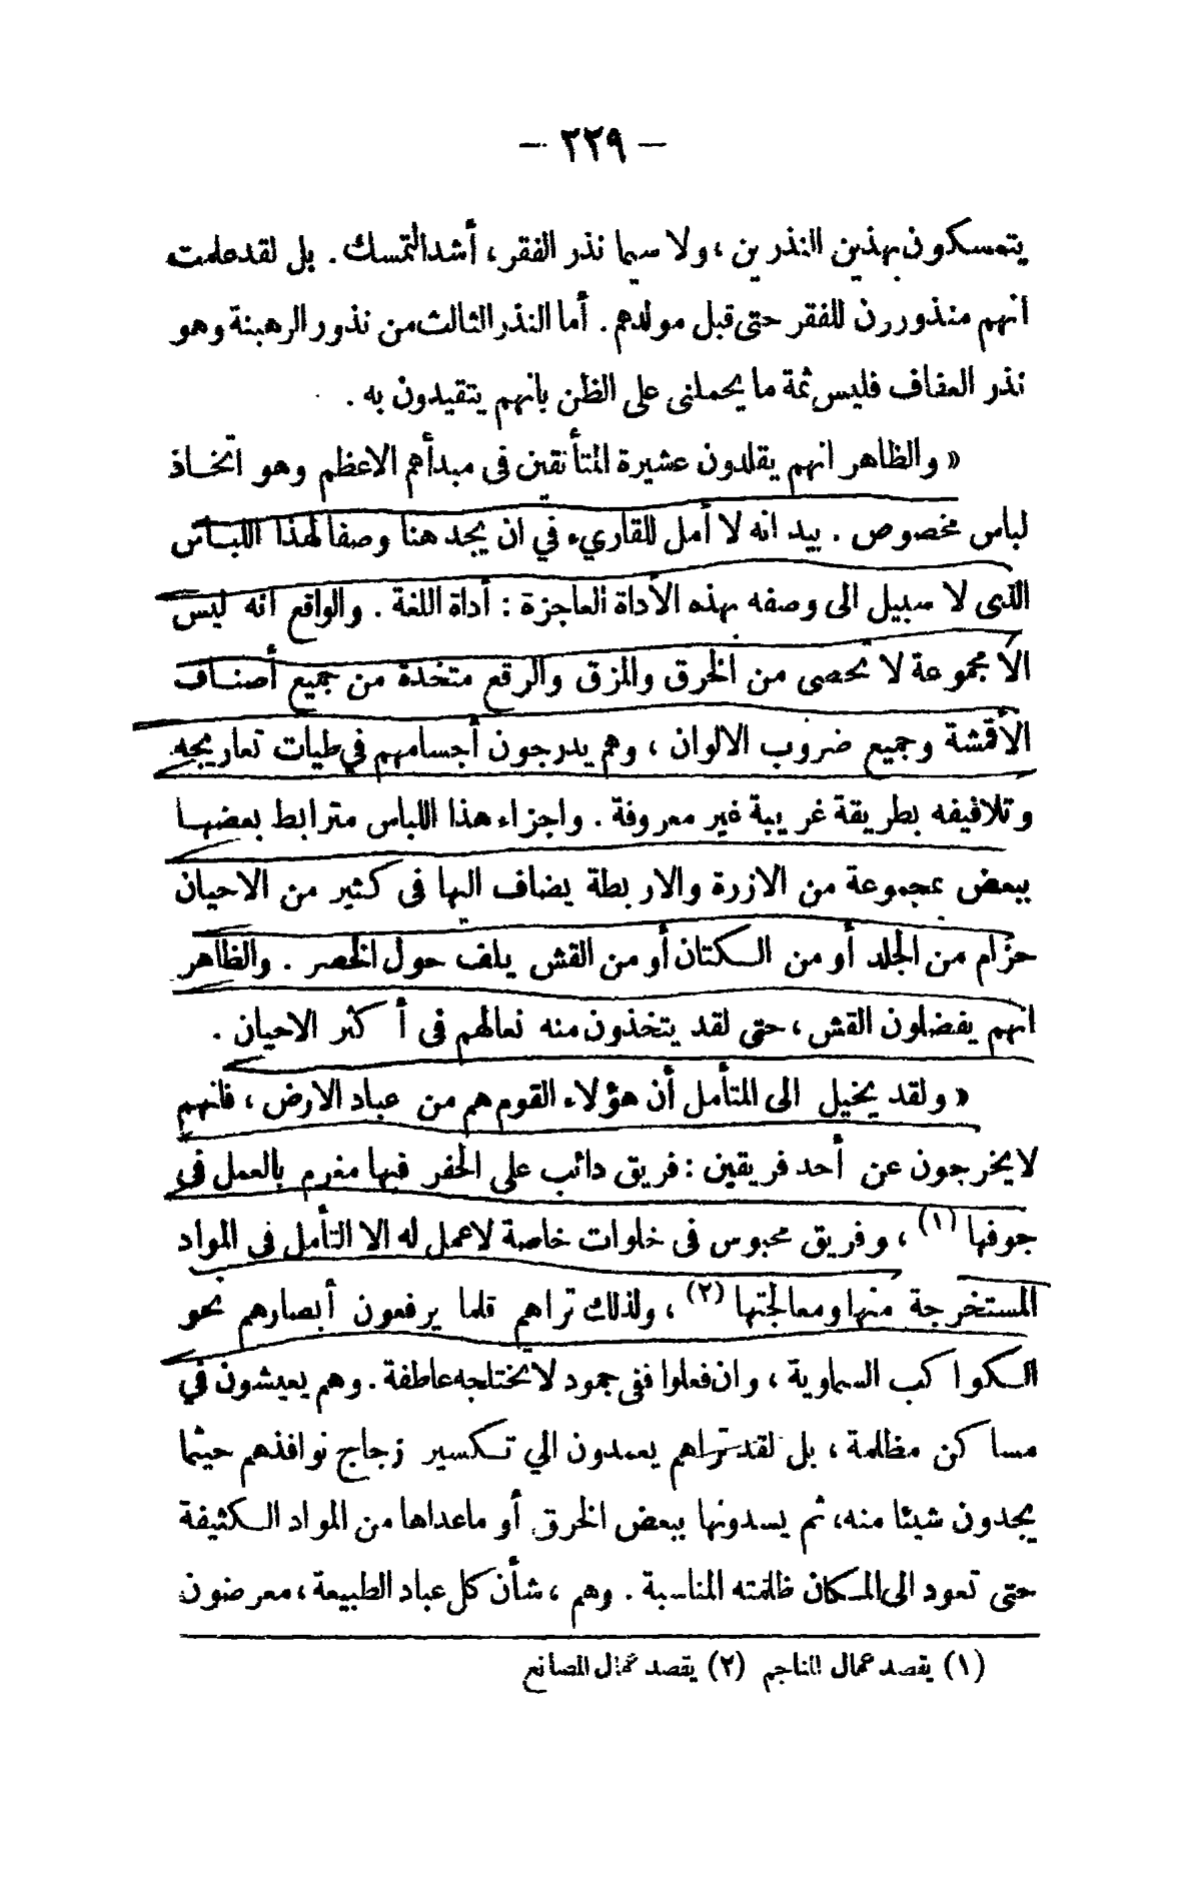 — ٢٢٩ —
يتمسكون بهذين النذرين ، ولا سيما نذر الفقر ، أشد التمسك . بل لقد علمت
انهم منذورون للفقر حتى قبل مولدهم . أما النذر الثالث من نذور الرهبنة وهو
نذر العفاف فليس ثمة ما يحملنى على الظن بانهم يتقيدون به .
« والظاهر انهم يقلدون عشيرة المتأنقين فى مبدأهم الاعظم وهو اتخاذ
لباس مخصوص . بيد انه لا أمل للقاريء في ان يجد هنا وصفا لهذا اللباس
الذى لا سبيل الى وصفه بهذه الأداة العاجزة : أداة اللغة . والواقع انه ليس
الا مجموعة لا تحصى من الخرق والمزق والرقع متخذة من جميع أصناف
الأقمشة وجميع ضروب الالوان ، وهم يدرجون أجسامهم في طيات تعاريجه
وتلافيفه بطريقة غريبة غير معروفة . واجزاء هذا اللباس مترابط بعضها
ببعض بمجموعة من الازرة والاربطة يضاف اليها فى كثير من الاحيان
حزام من الجلد أو من الكتان أو من القش يلف حول الخصر . والظاهر
انهم يفضلون القش ، حتى لقد يتخذون منه نعالهم فى أكثر الاحيان .
« ولقد يخيل الى المتأمل أن هؤلاء القوم هم من عباد الارض ، فانهم
لا يخرجون عن أحد فريقين : فريق دائب على الحفر فيها مغرم بالعمل فى
جوفها (١) ، وفريق محبوس فى خلوات خاصة لا عمل له الا التأمل فى المواد
المستخرجة منها ومعالجتها (٢) ، ولذلك تراهم قلما يرفعون أبصارهم نحو
الكواكب السماوية ، وان فعلوا ففى جمود لا تختلجه عاطفة . وهم يعيشون في
مساكن مظلمة ، بل لقد تراهم يعمدون الي تكسير زجاج نوافذهم حيثما
يجدون شيئا منه، ثم يسدونها ببعض الخرق أو ماعداها من المواد الكثيفة
حتى تعود الى المكان ظلمته المناسبة . وهم ، شأن كل عباد الطبيعة ، معرضون
(١) يقصد عمال المناجم (٢) يقصد عمال المصانع